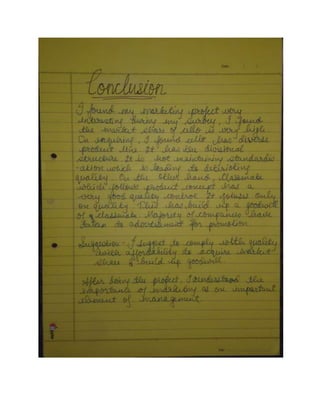 Conclusion
I found my marketing project very
interesting. During my survey, I found
the market share of cello is very high.
On enquiring, I found cello has diverse
product line. It has the divisional
structure. It is not maintaining standardis
-ation which is leading to deficiating
quality. On the other hand, Classmate
which follows product concept has a
very good quality control. It focuses only
on quality. This has build up a goodwill
of classmate. Majority of companies have
taken to advertisement for promotion.
Suggestion - I suggest to comply with quality
with affordability to acquire market
share & build up goodwill.
After doing the project, I understood the
importance of marketing as an important
element of management.